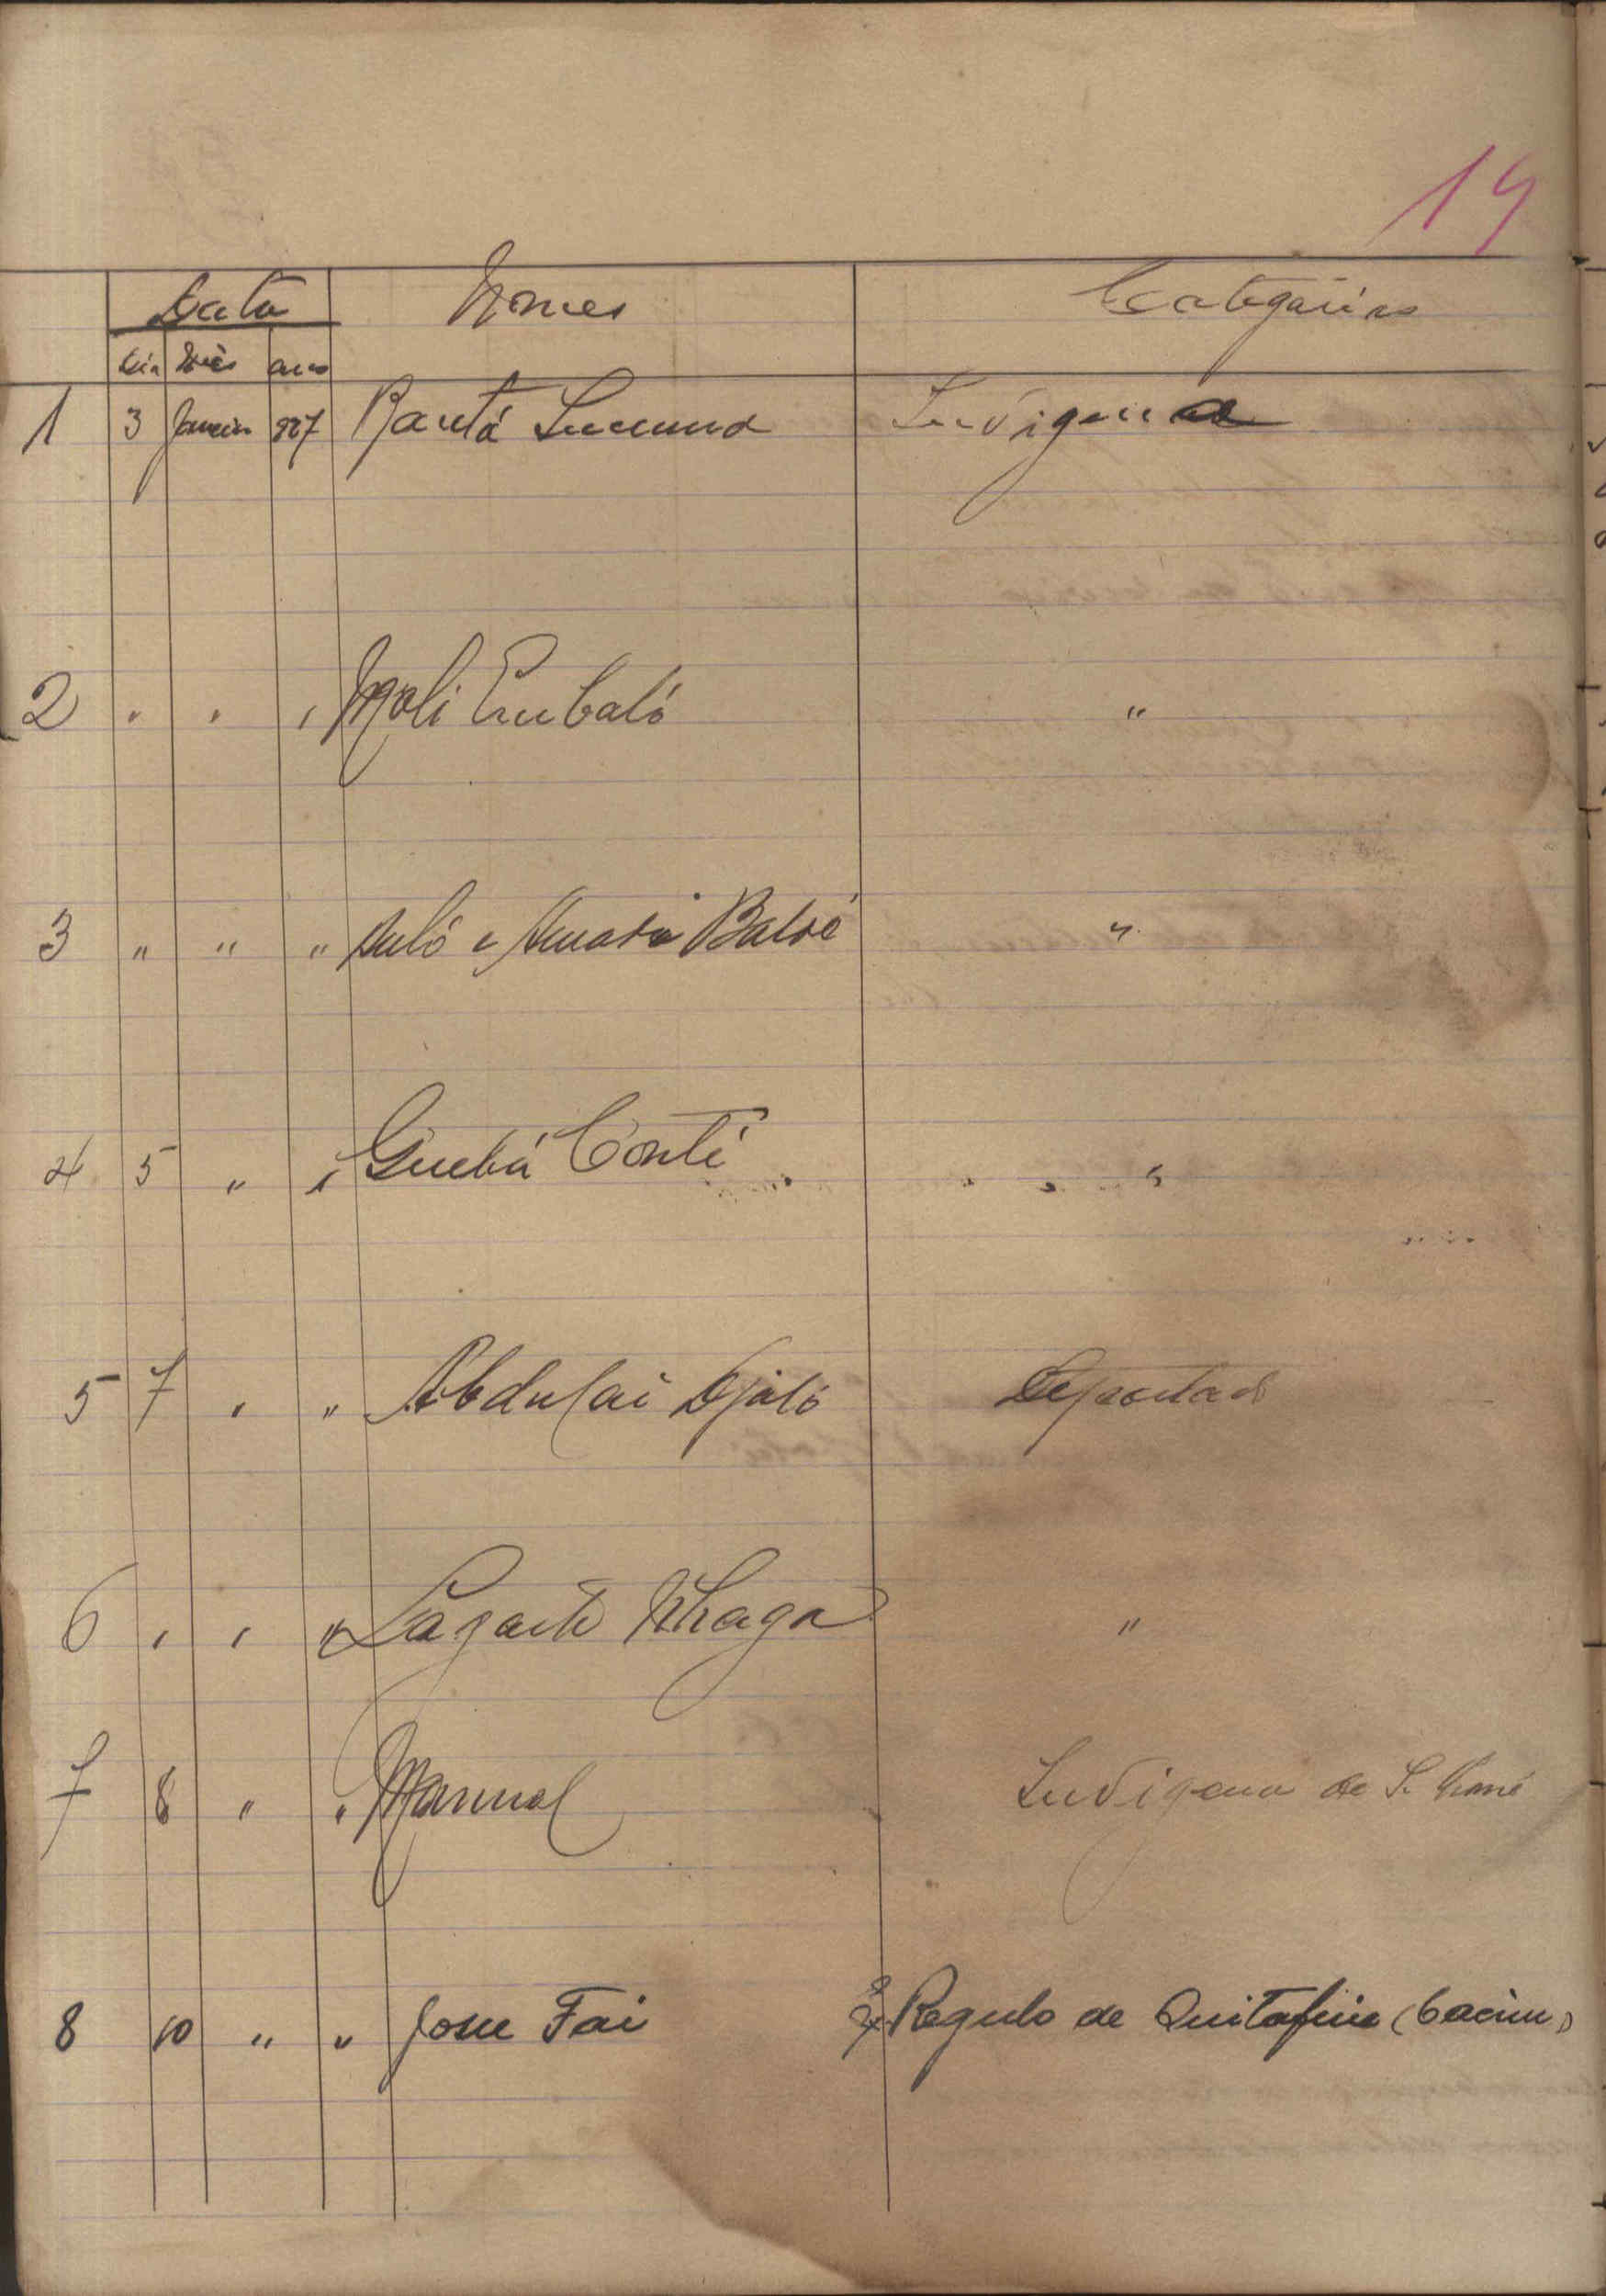 19
Data Nomes Categorias
Dia Mês ano
1 3 Janeiro 927 Bantá Indigena
2 " " " Mali Embaló "
3 " " " Suló e Baldé "
4 5 " " Guebá Conté "
5 7 " " Abdulai Djaló Deportado
6 " " " Lagarto Nhaga "
7 8 " " Manuel Indigena de S. Thomé
8 10 " " Josue Fai Regulo de Quitafine (Cacine)